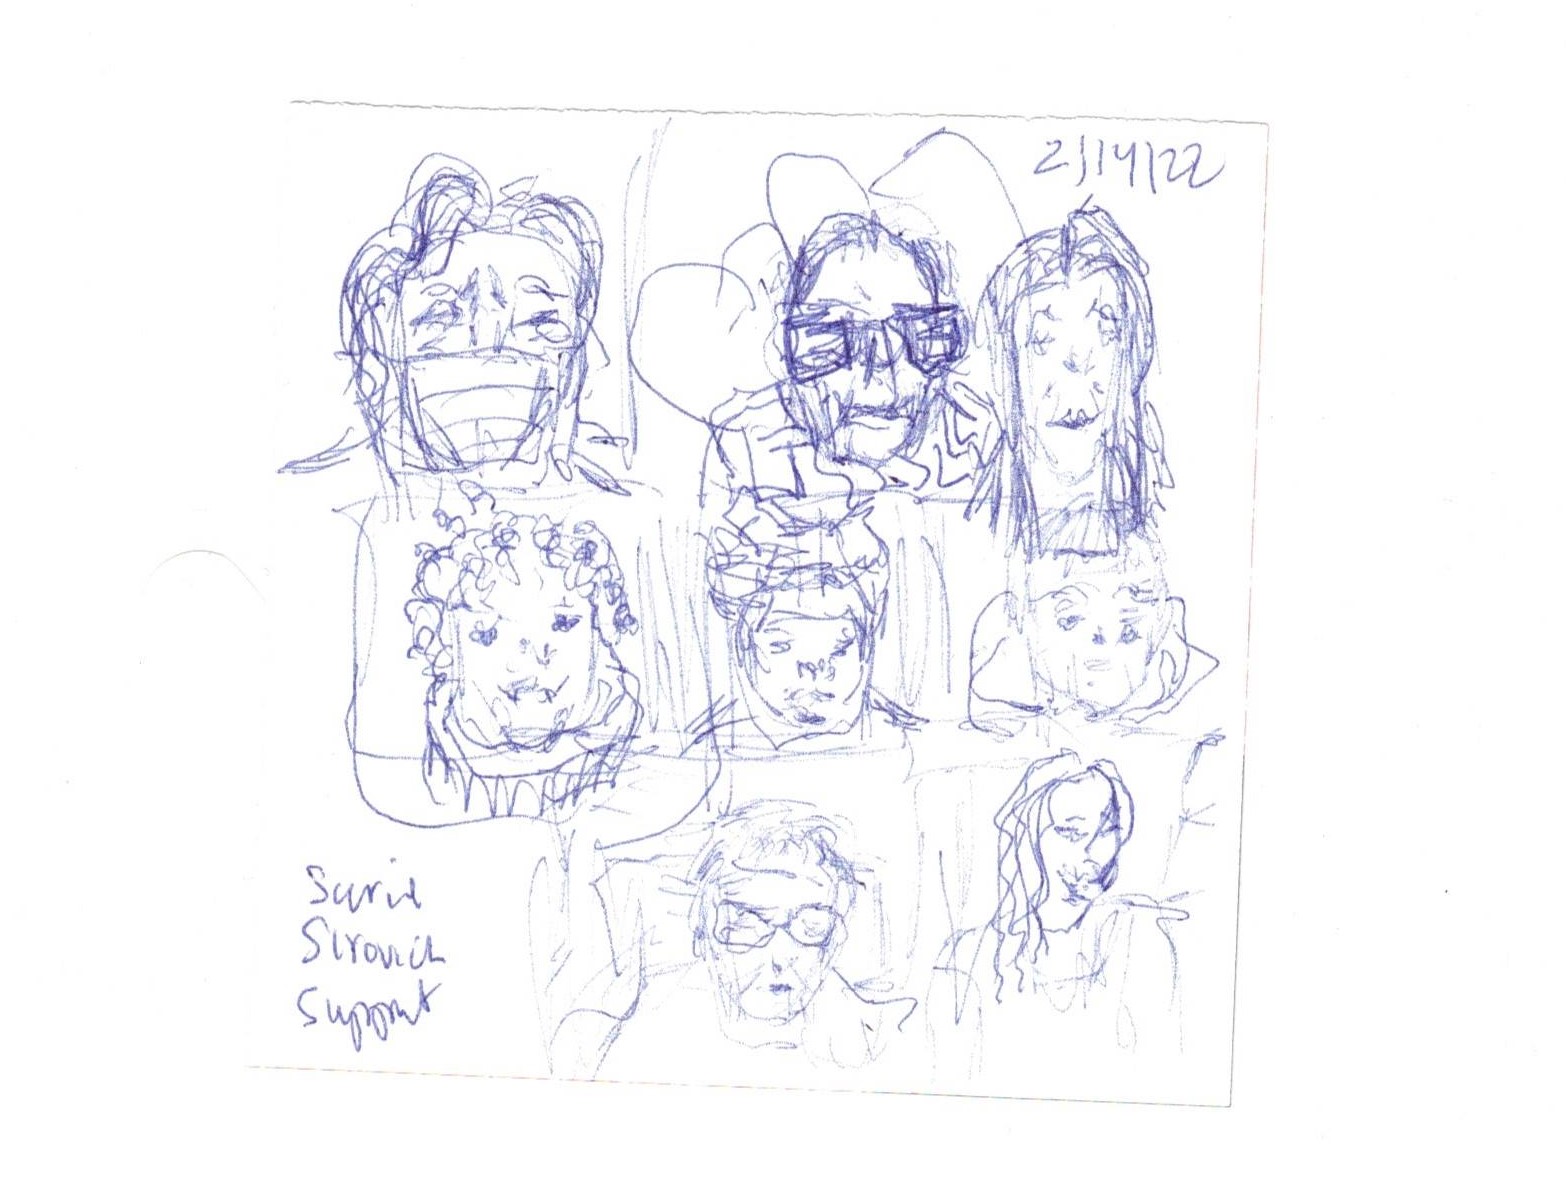 2/14/22
Sirovich
Support